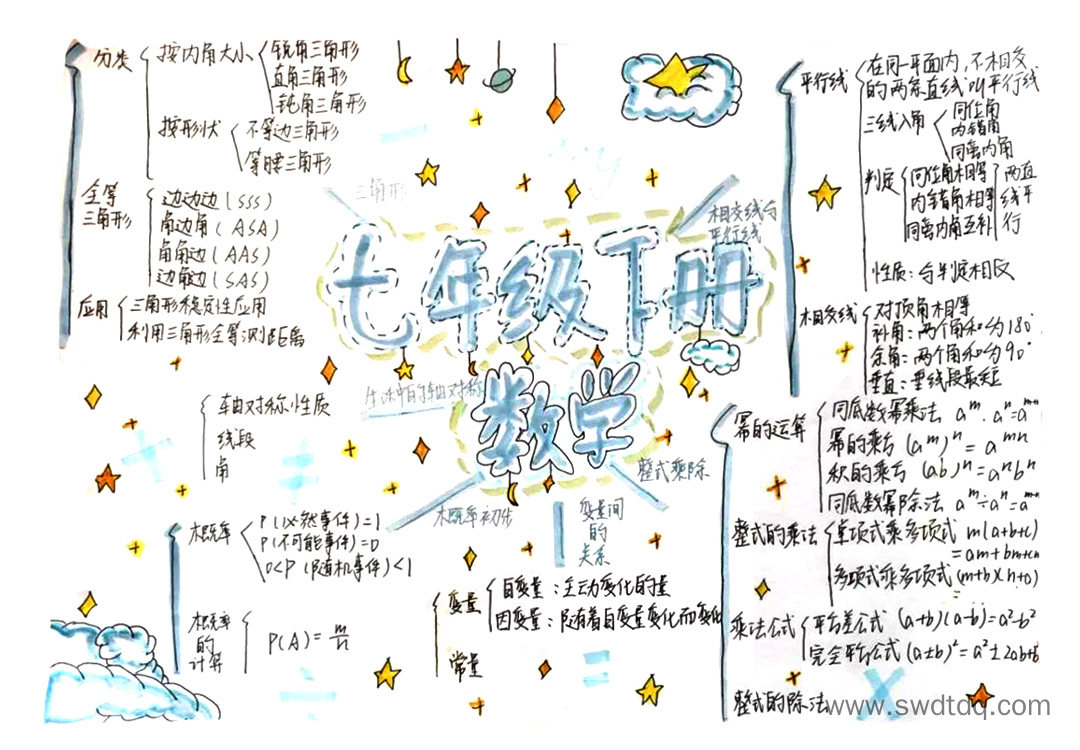 分类
按内角大小
锐角三角形
直角三角形
钝角三角形
按形状
不等边三角形
等腰三角形
全等
三角形
边边边(SSS)
角边角(ASA)
角角边(AAS)
边角边(SAS)
应用
三角形稳定性应用
利用三角形全等测距离
三角形
七年级下册
数学
相交线与
平行线
平行线
在同一平面内,不相交
的两条直线叫平行线
三线八角
同位角
内错角
同旁内角
判定
同位角相等
内错角相等
同旁内角互补
两直
线平
行
性质:与判定相反
相交线
对顶角相等
补角:两个角和为180°
余角:两个角和为90°
垂直:垂线段最短
生活中的轴对称
轴对称性质
线段
角
概率初步
概率
P(必然事件)=1
P(不可能事件)=0
0<P(随机事件)<1
概率
的
计算
P(A)=m/n
变量间
的
关系
变量
自变量:主动变化的量
因变量:随着自变量变化而变化
常量
整式乘除
幂的运算
同底数幂乘法 aᵐ·aⁿ=aᵐ⁺
幂的乘方 (aᵐ)ⁿ=aᵐⁿ
积的乘方 (ab)ⁿ=aⁿbⁿ
同底数幂除法 aᵐ÷aⁿ=aᵐ
整式的乘法
单项式乘多项式 m(a+b+c)
=am+bm+cm
多项式乘多项式(m+b)(n+a)
乘法公式
平方差公式 (a+b)(a-b)=a²-b²
完全平方公式(a±b)²=a²±2ab+b
整式的除法
www.swdtdq.com